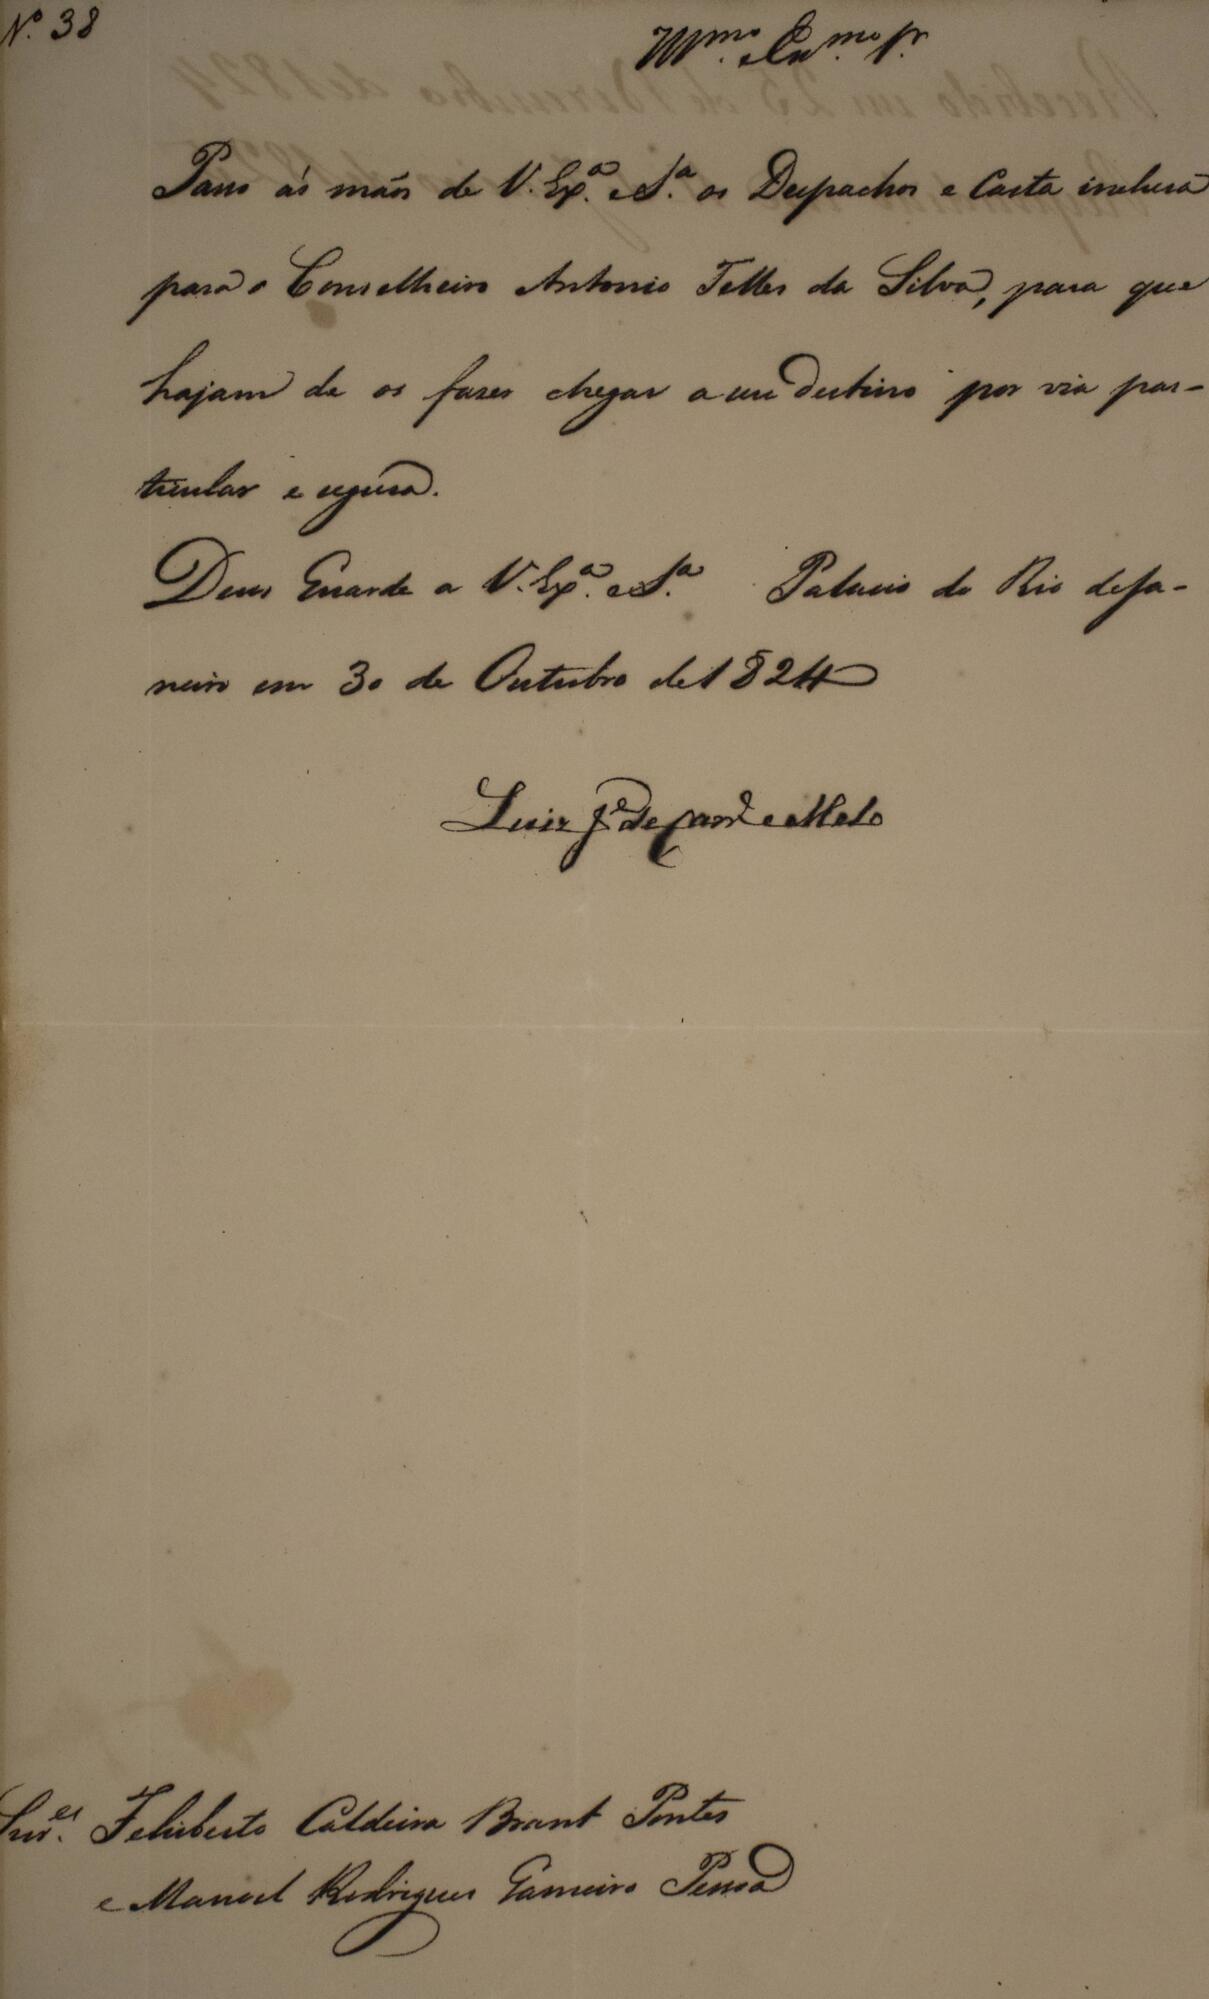 Nº 38
Illmo. e Exmo. Sr.
Passo ás mãos de V. Exª. e Sª. os Despachos e Carta inclusa
para o Conselheiro Antonio Telles da Silva, para que
hajam de os fazer chegar a seu destino por via par-
ticular e segura.
Deus Guarde a V. Exª. e Sª. Palacio do Rio de Ja-
neiro em 30 de Outubro de 1824
Luiz Jº de Carvº e Mello
Snr.es Felisberto Caldeira Brant Pontes
e Manoel Rodrigues Gameiro Pessoa